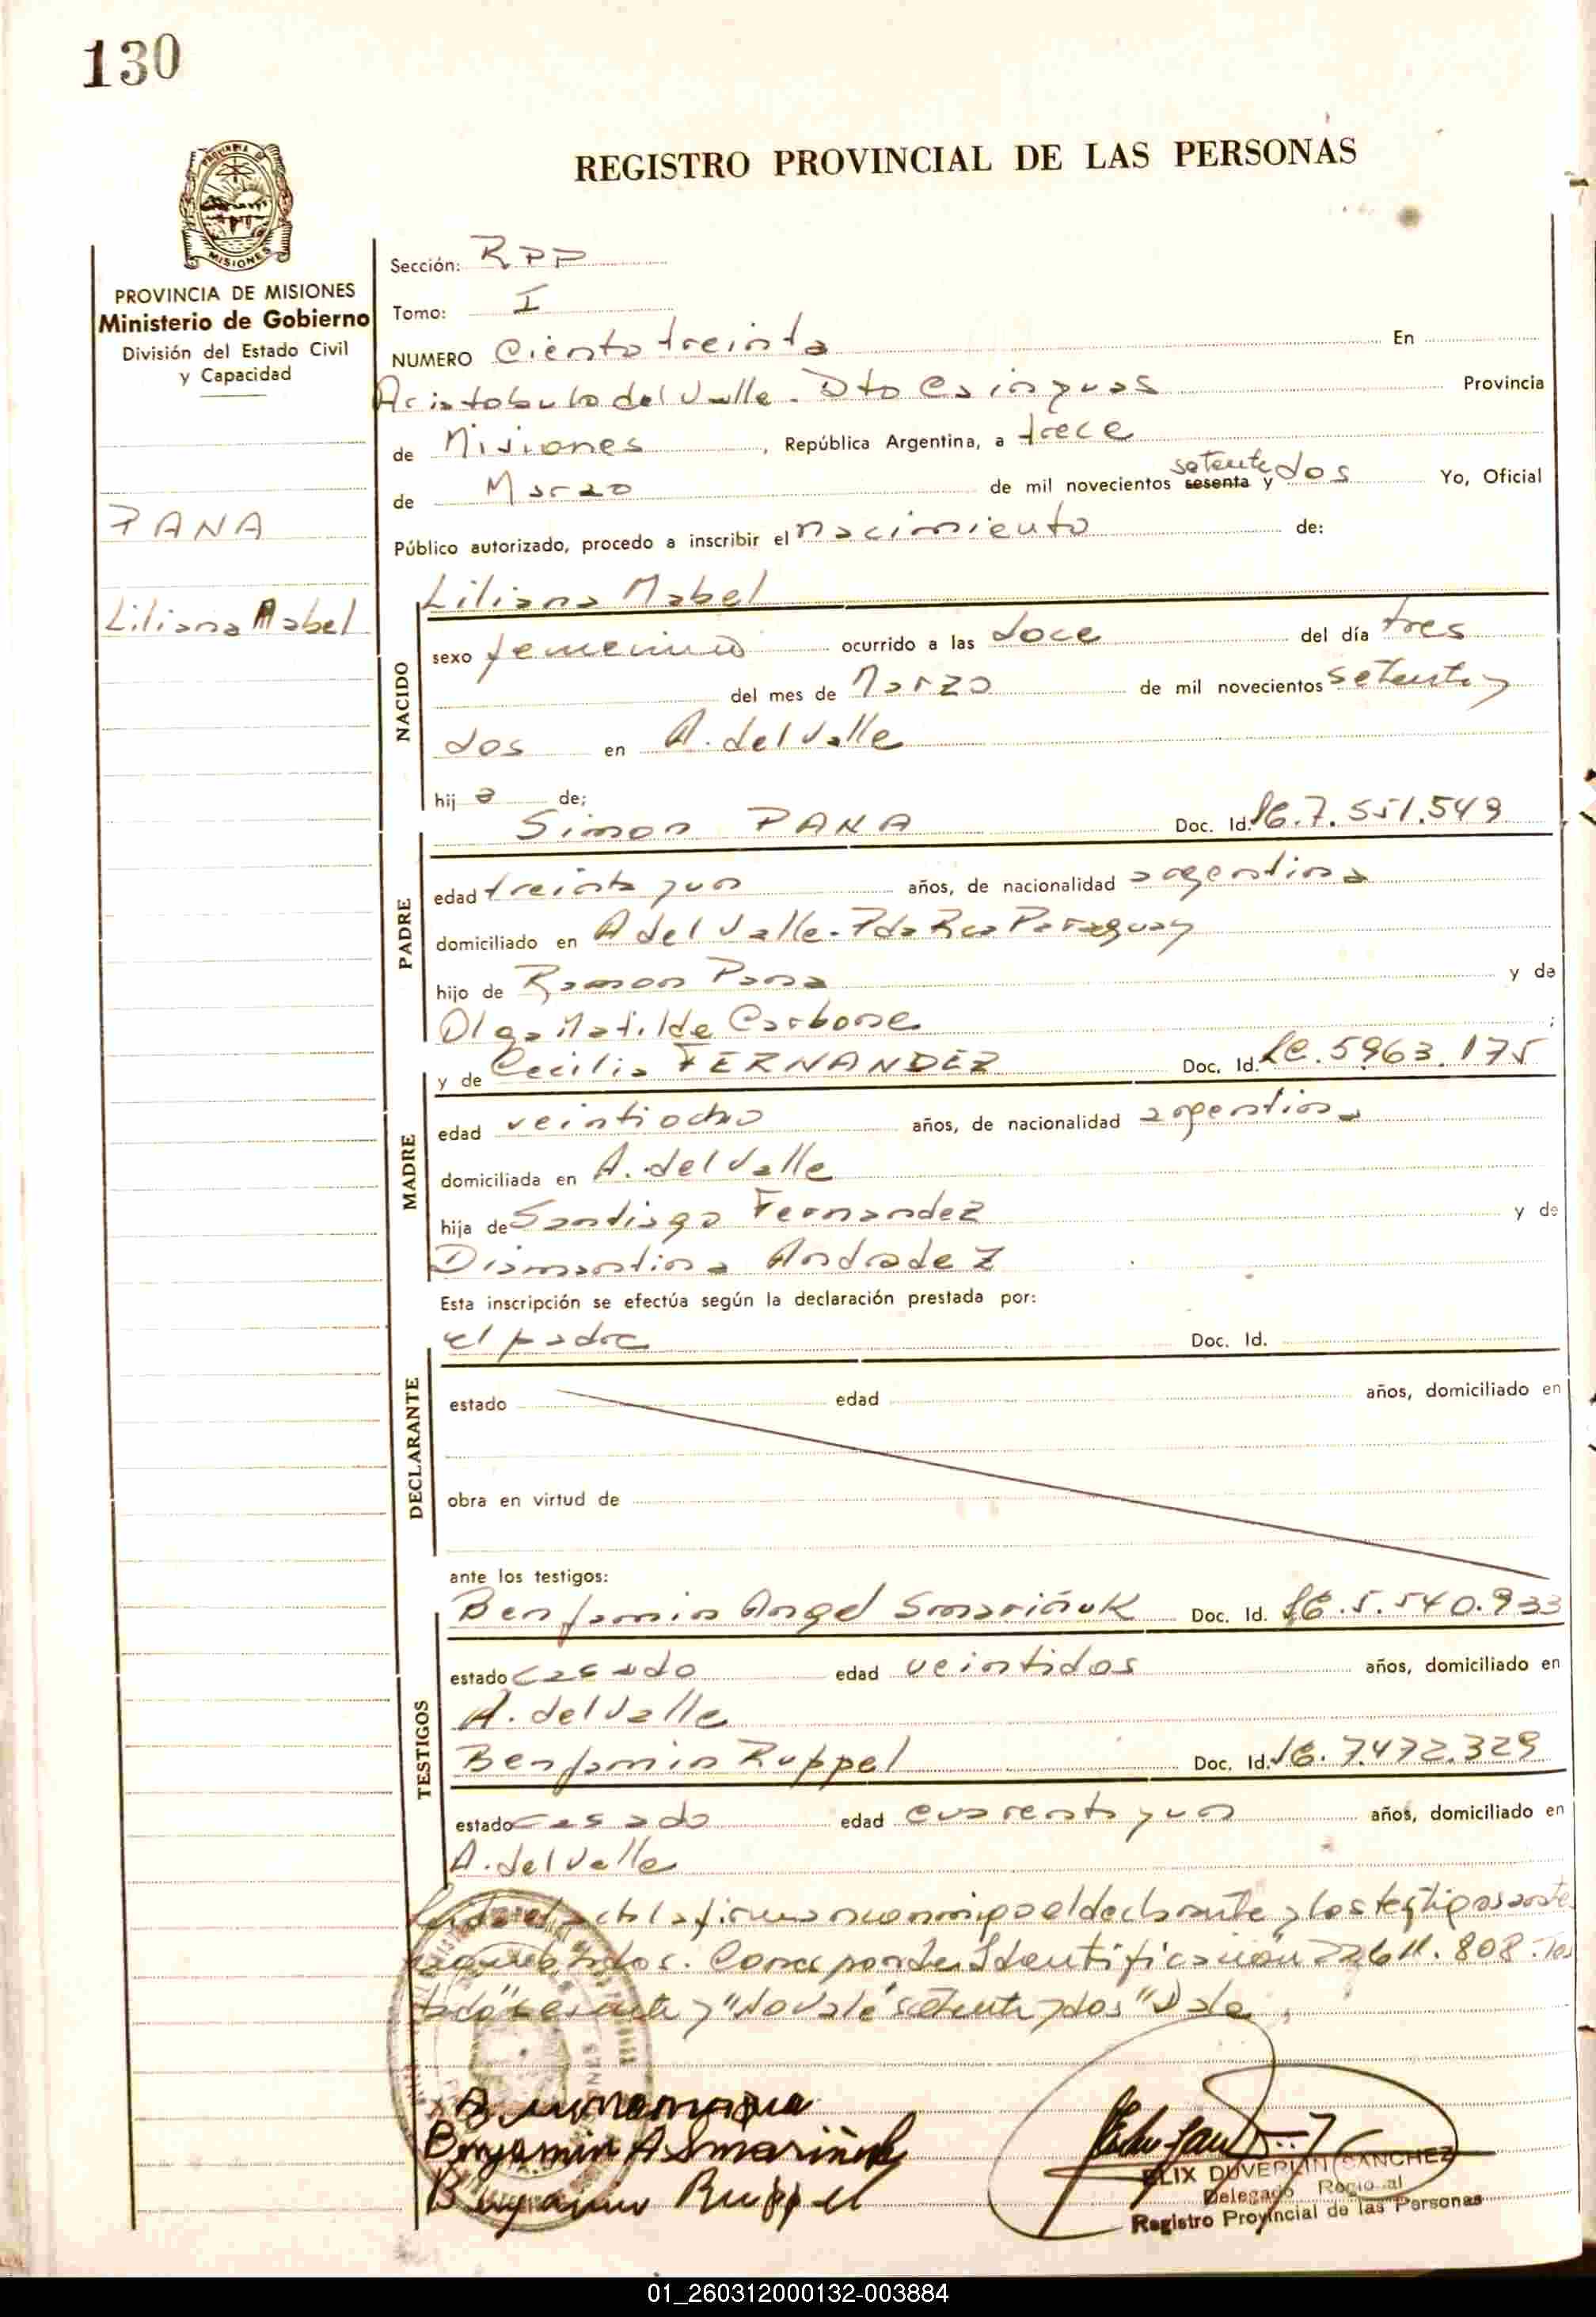 130
REGISTRO PROVINCIAL DE LAS PERSONAS
MISIONES
PROVINCIA DE MISIONES
Ministerio de Gobierno
División del Estado Civil
y Capacidad
PANA
Liliana Mabel
Sección: RPP
Tomo: I
NUMERO Ciento treinta En
Aristobulo del Valle. Dto Cainguas Provincia
de Misiones, República Argentina, a trece
setenta
de Marzo de mil novecientos sesenta y dos Yo, Oficial
Público autorizado, procedo a inscribir el nacimiento de:
Liliana Mabel
NACIDO
sexo femenino ocurrido a las doce del día tres
del mes de Marzo de mil novecientos setenta y
dos en A. del Valle
hij a de;
Simon PANA Doc. Id. 7.551.549
PADRE
edad treinta y un años, de nacionalidad argentina
domiciliado en A del Valle - Pda Rca Paraguay
hijo de Ramon Pana y de
Olga Matilde Carbone ;
y de Cecilia FERNANDEZ Doc. Id. LC. 5963.175
MADRE
edad veintiocho años, de nacionalidad argentina
domiciliada en A. del Valle
hija de Santiago Fernandez y de
Diamantina Andradez
Esta inscripción se efectúa según la declaración prestada por:
el padre Doc. Id.
DECLARANTE
estado edad años, domiciliado en
obra en virtud de
ante los testigos:
Benjamin Angel Smariñuk Doc. Id. 5.540.933
TESTIGOS
estado casado edad veintidos años, domiciliado en
A. del Valle
Benjamin Ruppel Doc. Id. 7.472.329
estado casado edad cuarenta y un años, domiciliado en
A. del Valle
Leida el acta la firman conmigo el declarante y los testigos ante
Corresponde Identificación 22611.808. Tes
tado "sesenta y" No vale "setenta y dos" Vale
Benjamin A Smariñuk
Benjamin Ruppel
ELIX DUVERLIN SANCHEZ
Delegado
Registro Provincial de las Personas
01_260312000132-003884